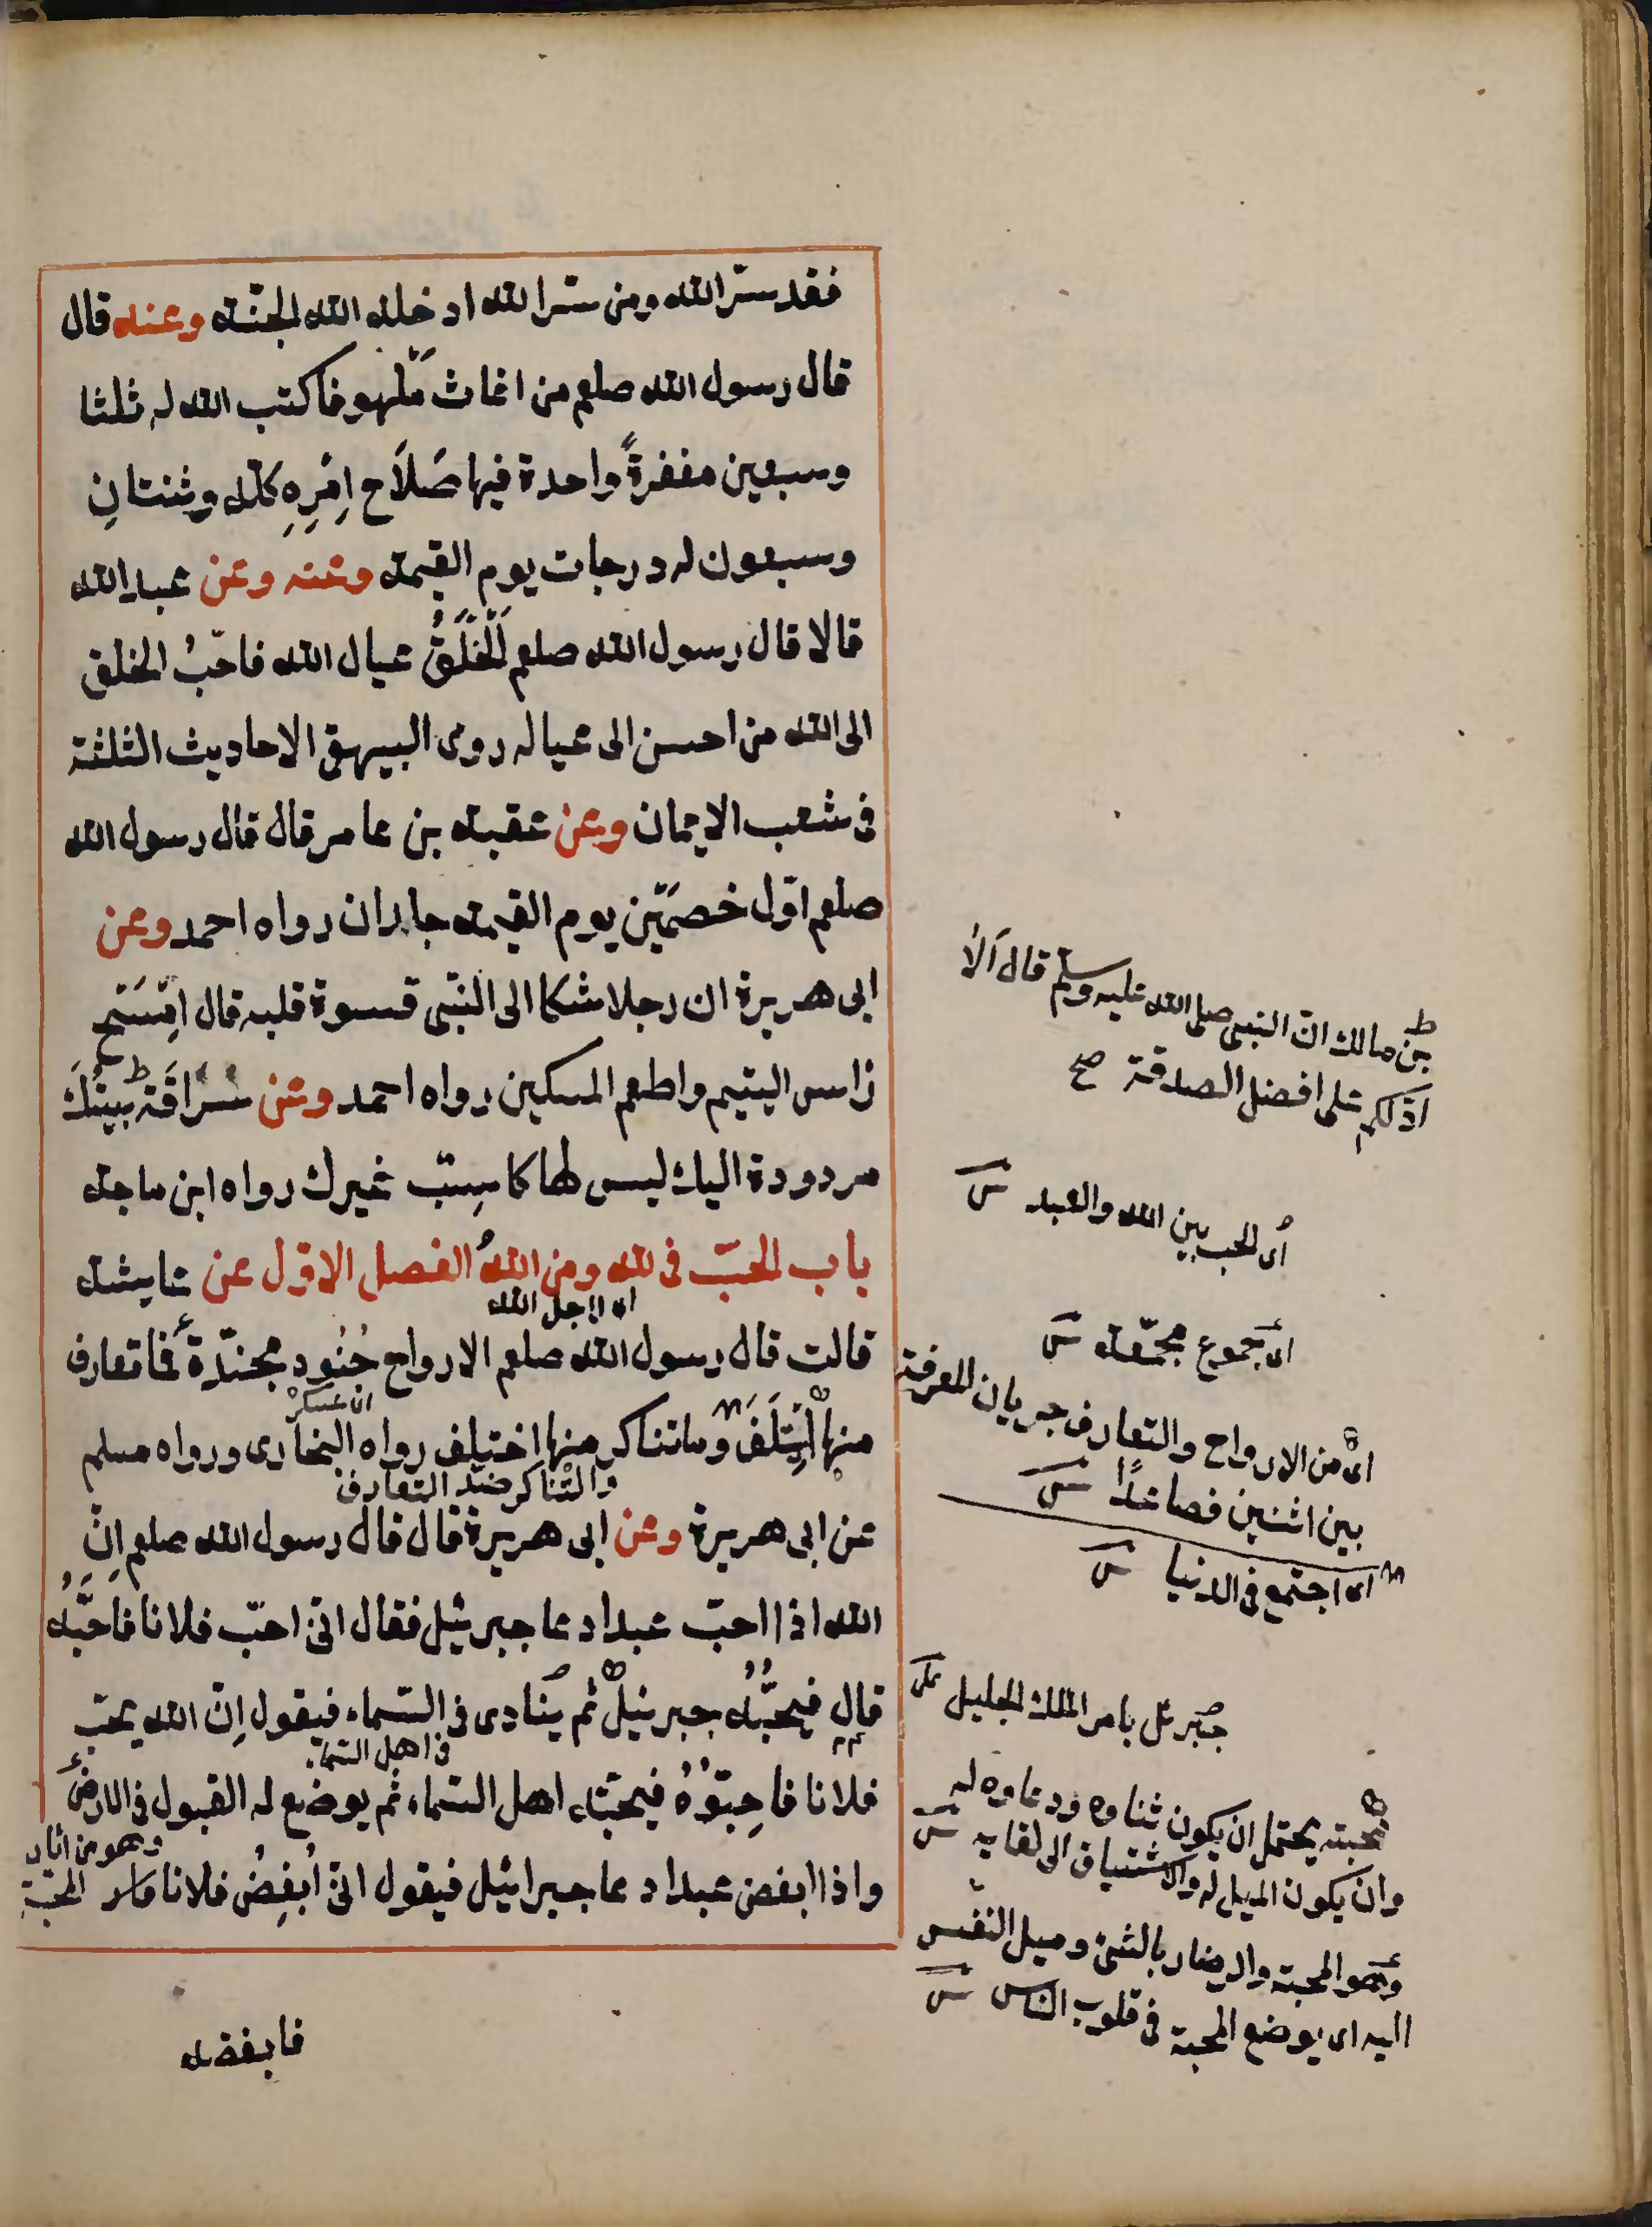 فقد سرّ الله ومن سرّ الله ادخله الله الجنّة وعنه قال
قال رسول الله صلعم من اغاث ملهوفا كتب الله له ثلثا
وسبعين مغفرةً واحدة فيها صَلَاح اَمْرِهِ كله وثنتانِ
وسبعون له درجات يوم القيمة وعنه وعن عبد الله
قالا قال رسول الله صلعم اَلْخَلْقُ عيال الله فاحبُّ الخلق
الى الله من احسن الى عياله روى البيهقى الاحاديث الثلثة
فى شعب الايمان وعن عقبة بن عامر قال قال رسول الله
صلعم اوّل خصمَيْن يوم القيمة جاران رواه احمد وعن
ابى هريرة ان رجلا شكا الى النبى قسوة قلبه قال اِمْسَح
رأس اليتيم واطعم المسكين رواه احمد وعن سُراقَة بِنْتُكَ
مردودة اليك ليس لها كاسِبٌ غيرك رواه ابن ماجة
باب الحبّ فى لله ومن اللهُ الفصل الاوّل عن عايشة
اى لاجل الله
قالت قال رسول الله صلعم الارواح جُنُود مجنّدة فما تعارف
اى عسكر
منها اْئتَلَفَ وما تناكر منها اختلف رواه البخارى ورواه مسلم
والتناكر ضدّ التعارف
عن ابى هريرة وعن ابى هريرة قال قال رسول الله صلعم اِنّ
الله اذا احبّ عبدا دعا جبرئيل فقال انّى احبّ فلانا فاَحَبَّهُ
قال فيحبُّهُ جبرئيل ثم يُنادى فى السّماء فيقول اِنّ الله يحبّ
فى اهل السّماء
فلانا فاحِبّوُهُ فيحبّه اهل السّماء ثم يوضع له القبول فى الارض
وهو من اثار المحبّة
واذا ابغض عبدا دعا جبرائيل فيقول انّى اُبغِضُ فلانا
فابغضه
بن مالك انّ النبى صلى الله عليه وسلم قال اَلَا
ادّلكم على افضل الصدقة صح
اى الحب بين الله والعبد
اى جموع مجمّعة
اى من الارواح والتعارف جريان المعرفة
بين اثنين فصاعدًا
اى اجتمع فى الدنيا
جبرئل بامر الملك الجليل
محبته يحتمل ان يكون ثناوه ودعاوه له
وان يكون الميل له والاشتياق الى لقايه
وهو المحبة والرضاء بالشئ وميل النفس
اليه اى يوضع المحبة فى قلوب الناس